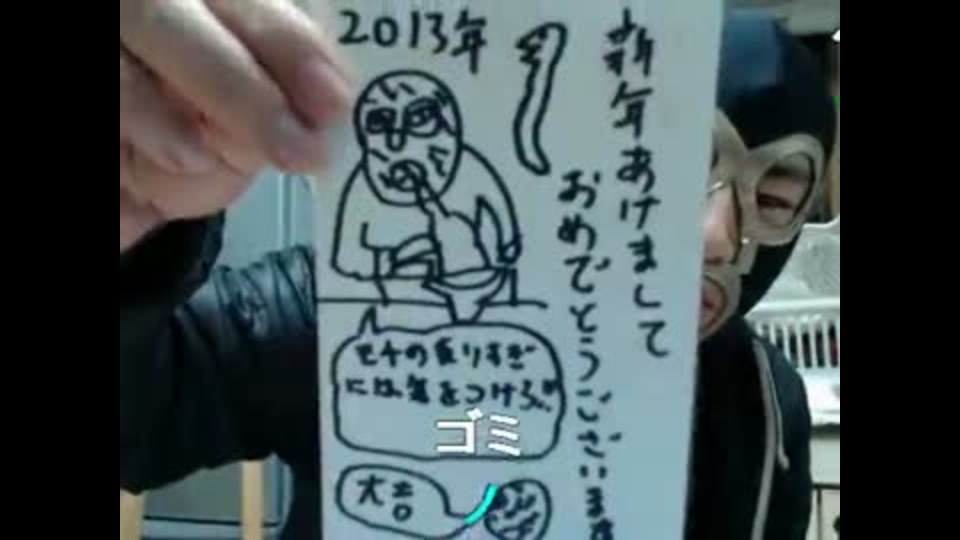 2013年
新年あけまして
おめでとうございます
モチの食りすぎ
には気をつけろ!!
ゴミ
大吉